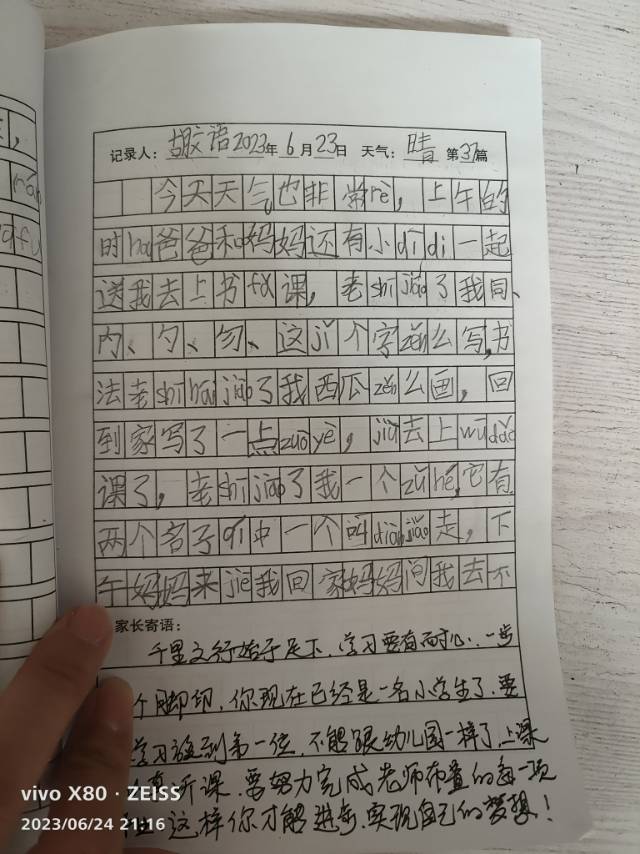 记录人：胡语 2023年6月23日 天气：晴 第37篇
今天天气也非常rè，上午的
时hou爸爸和妈妈还有小dìdi一起
送我去上书fǎ课，老shī jiāo了我同、
内、勺、勿、这jǐ个字zěn么写，书
法老shī hái jiāo了我西瓜zěn么画，回
到家写了一点zuò yè，jiù去上wǔ dǎo
课了，老shī jiāo了我一个zǔ hé，它有
两个名子qí中一个叫diǎn jiǎo走，下
午妈妈来jiē我回家妈妈问我去不
家长寄语：
千里之行始于足下，学习要有耐心，一步
个脚印，你现在已经是一名小学生了，要
学习放到第一位，不能跟幼儿园一样了，上课
真听课，要努力完成老师布置的每一项
这样你才能进步，实现自己的梦想！
vivo X80 · ZEISS
2023/06/24 21:16